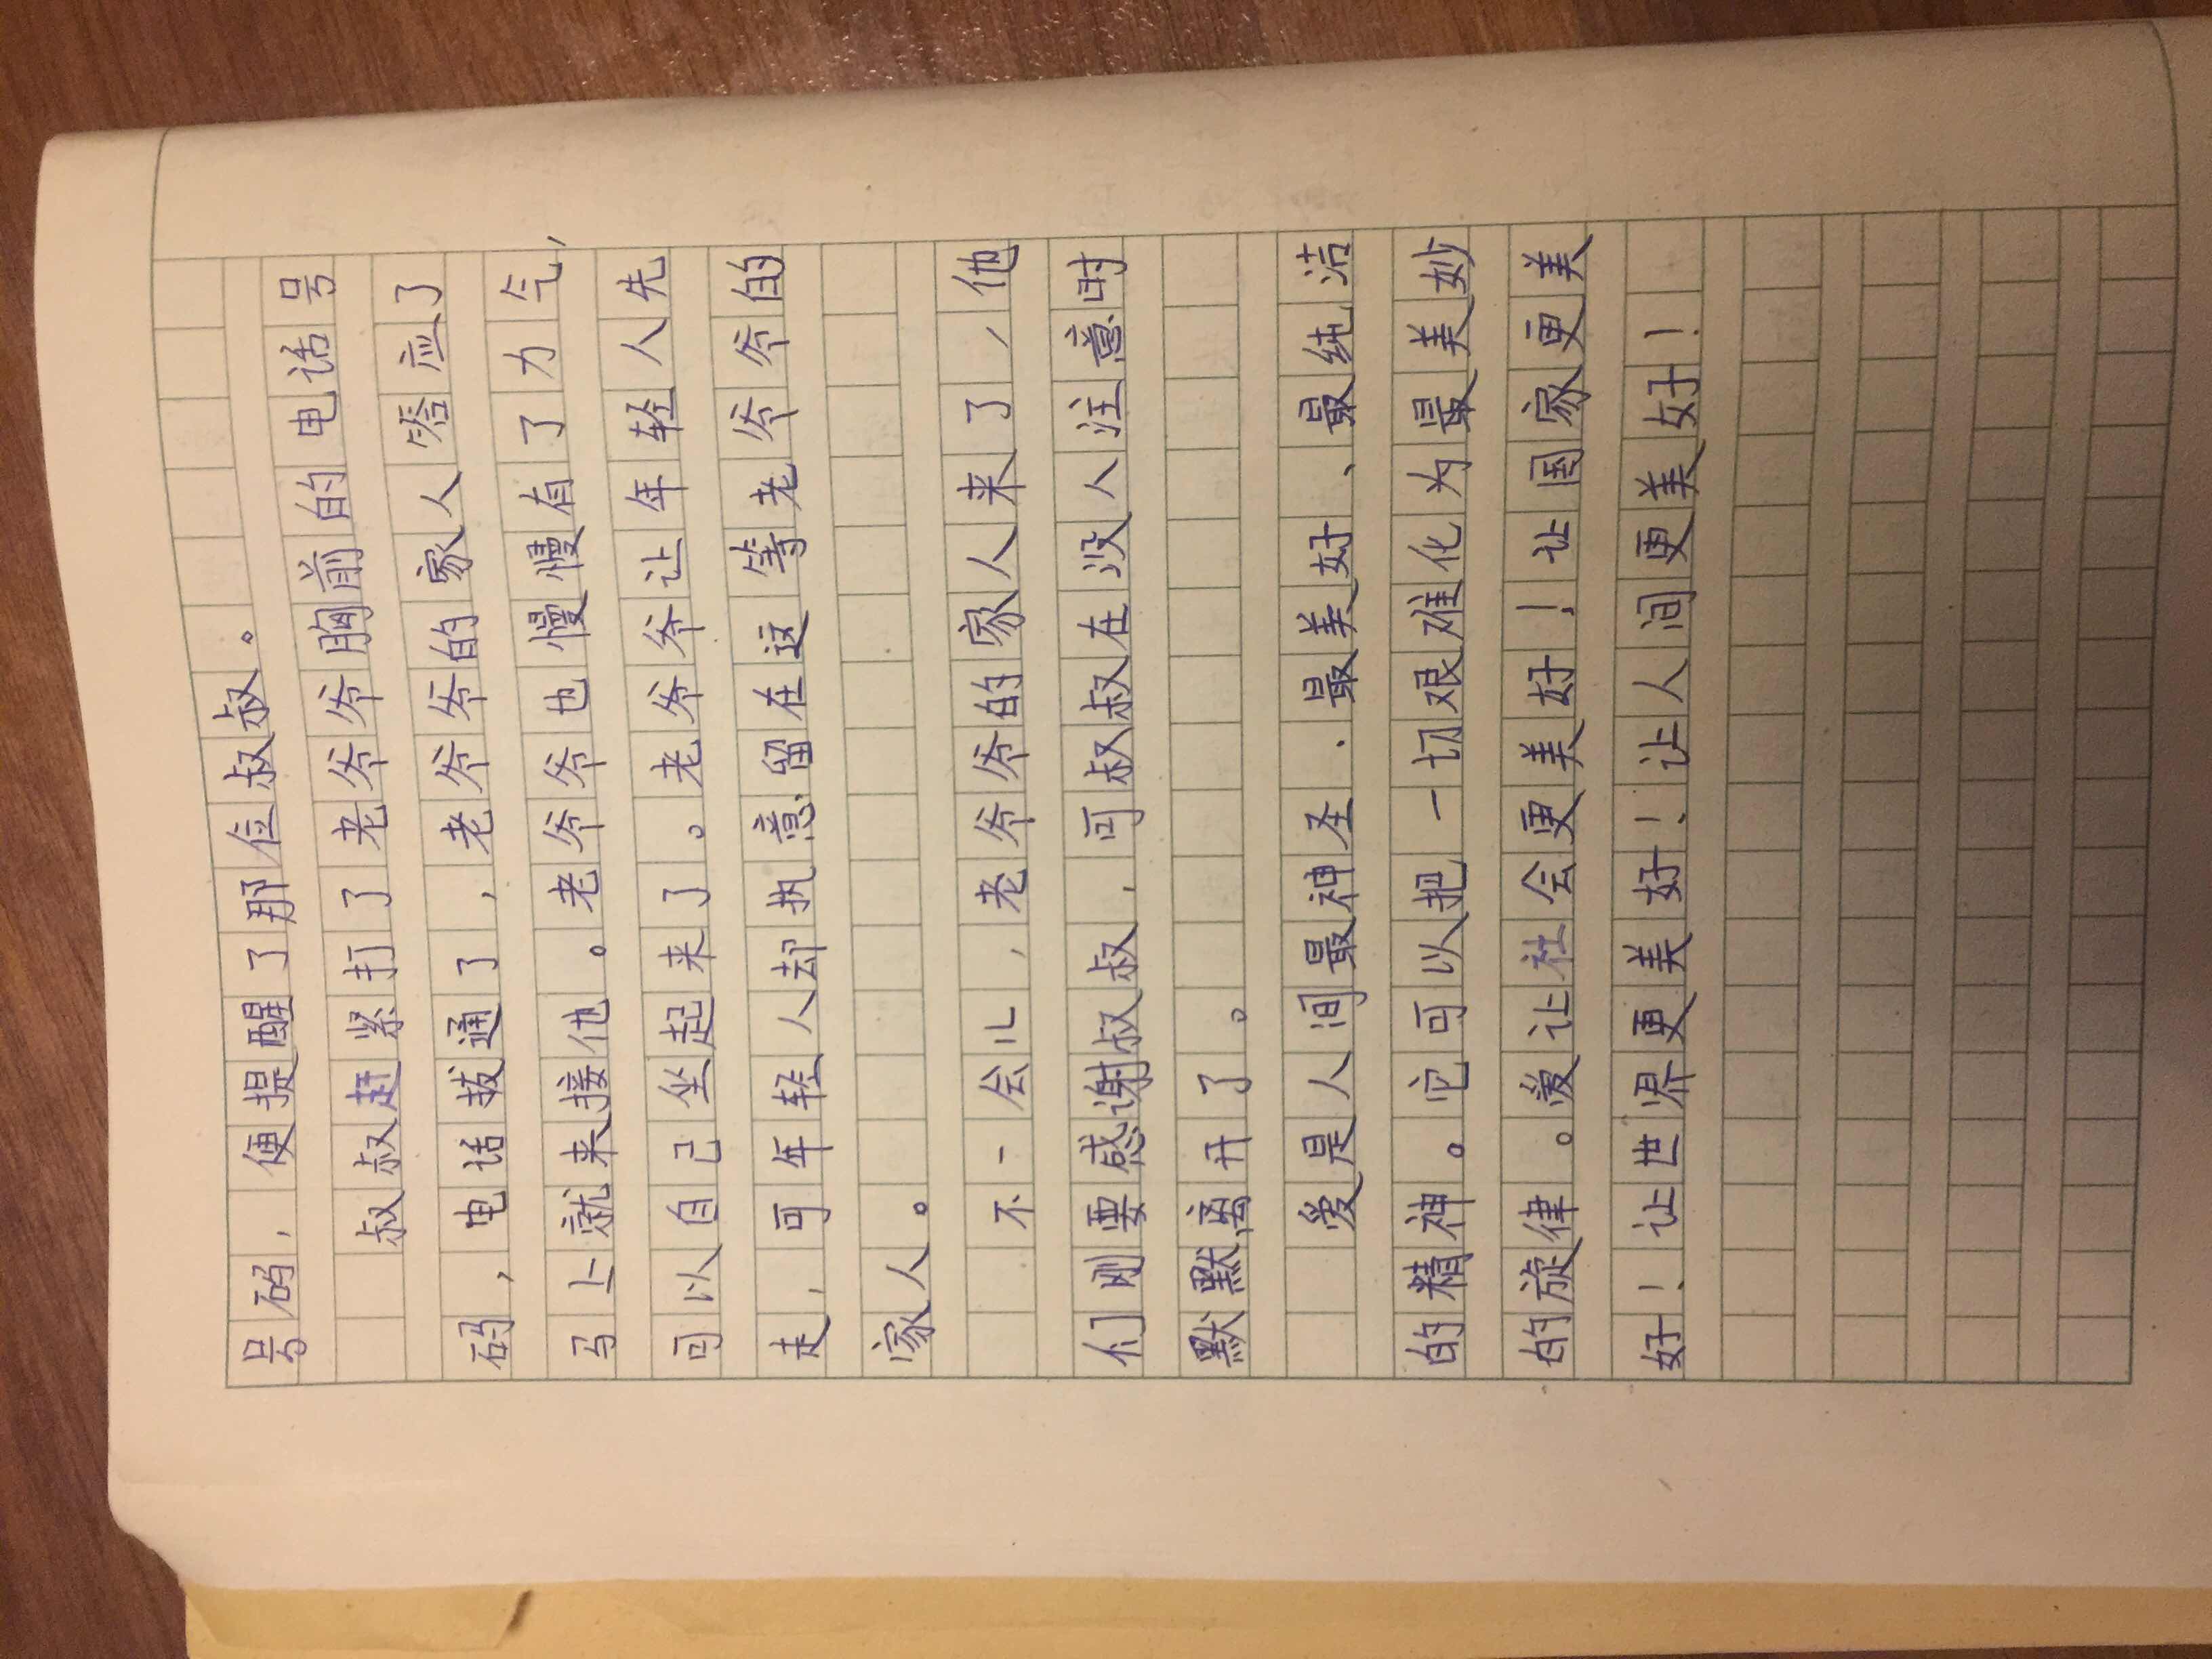 号码，便提醒了那位叔叔。
叔叔赶紧打了老爷爷胸前的电话号
码，电话拔通了，老爷爷的家人答应了
马上就来接他。老爷爷也慢慢有了力气，
可以自己坐起来了。老爷爷让年轻人先
走，可年轻人却执意留在这等老爷爷的
家人。
不一会儿，老爷爷的家人来了，他
们刚要感谢叔叔，可叔叔在没人注意时
默默离开了。
爱是人间最神圣、最美好、最纯洁
的精神。它可以把一切艰难化为最美妙
的旋律。爱让社会更美好！让国家更美
好！让世界更美好！让人间更美好！